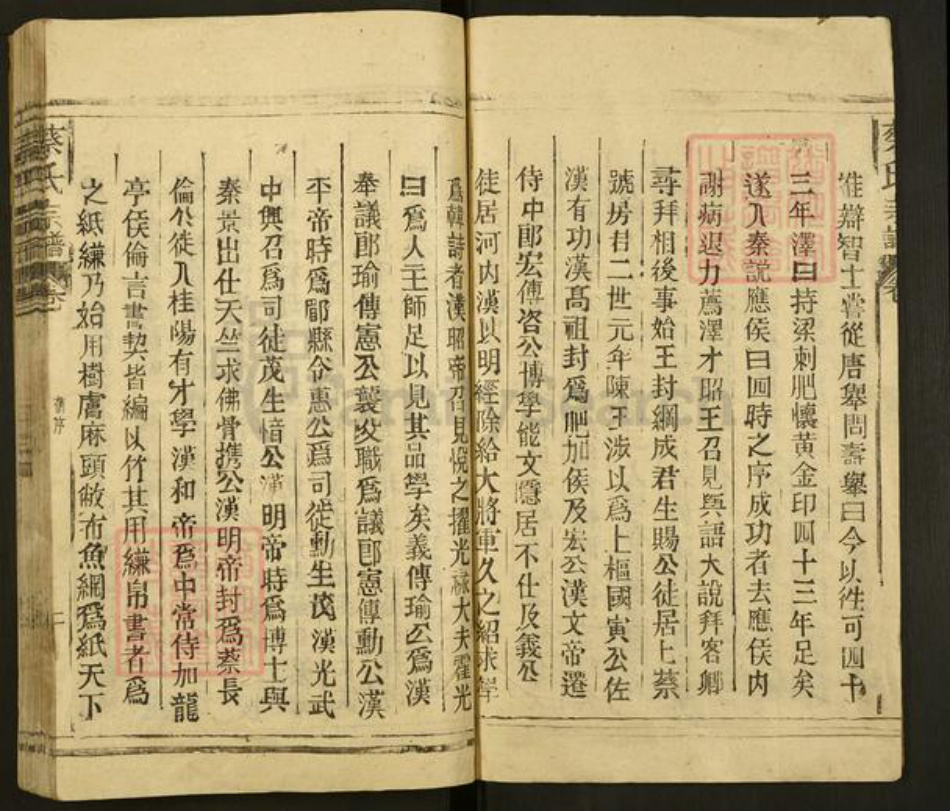 蔡氏宗譜 卷
雄辯智士嘗從唐舉問壽舉曰今以徃可四十
三年澤曰持梁刺肥懷黃金印四十三年足矣
遂入秦說應侯曰四時之序成功者去應侯内
謝病退力薦澤才昭王召見與語大說拜客卿
尋拜相後事始王封綱成君生賜公徒居上蔡
號房君二世元年陳王涉以爲上樞國寅公佐
漢有功漢髙祖封爲肥加侯及宏公漢文帝遷
侍中郎宏傳咨公博學能文隱居不仕及義公
徒居河内漢以明經除給大將軍久之紹求
爲韓詩者漢昭帝召見悅之擢光祿大夫霍光
曰爲人主師足以見其品學矣義傳瑜公爲漢
奉議郎瑜傳憲公襲父職爲議郎憲傳勳公漢
平帝時爲郿縣令惠公爲司徒勳生茂漢光武
中興召爲司徒茂生愔公漢明帝時爲博士與
秦景出仕天竺求佛骨携公漢明帝封爲蔡長
倫公徒入桂陽有才學漢和帝爲中常侍加龍
亭侯倫言書契皆編以竹其用縑帛書者爲
之紙縑乃始用樹膚麻頭敝布魚網爲紙天下
蔡氏宗譜 卷
舊序
二